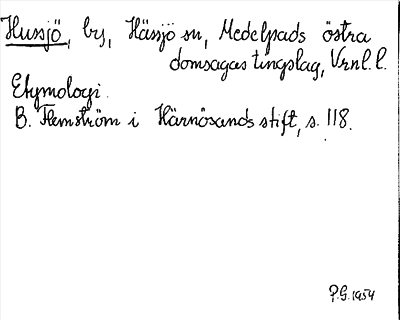 Hussjö, by, Hässjö sn, Medelpads östra
domsagas tingslag, Vrnl. l.
Etymologi.
B. Flemström i Härnösands stift, s. 118.
P.G. 1954